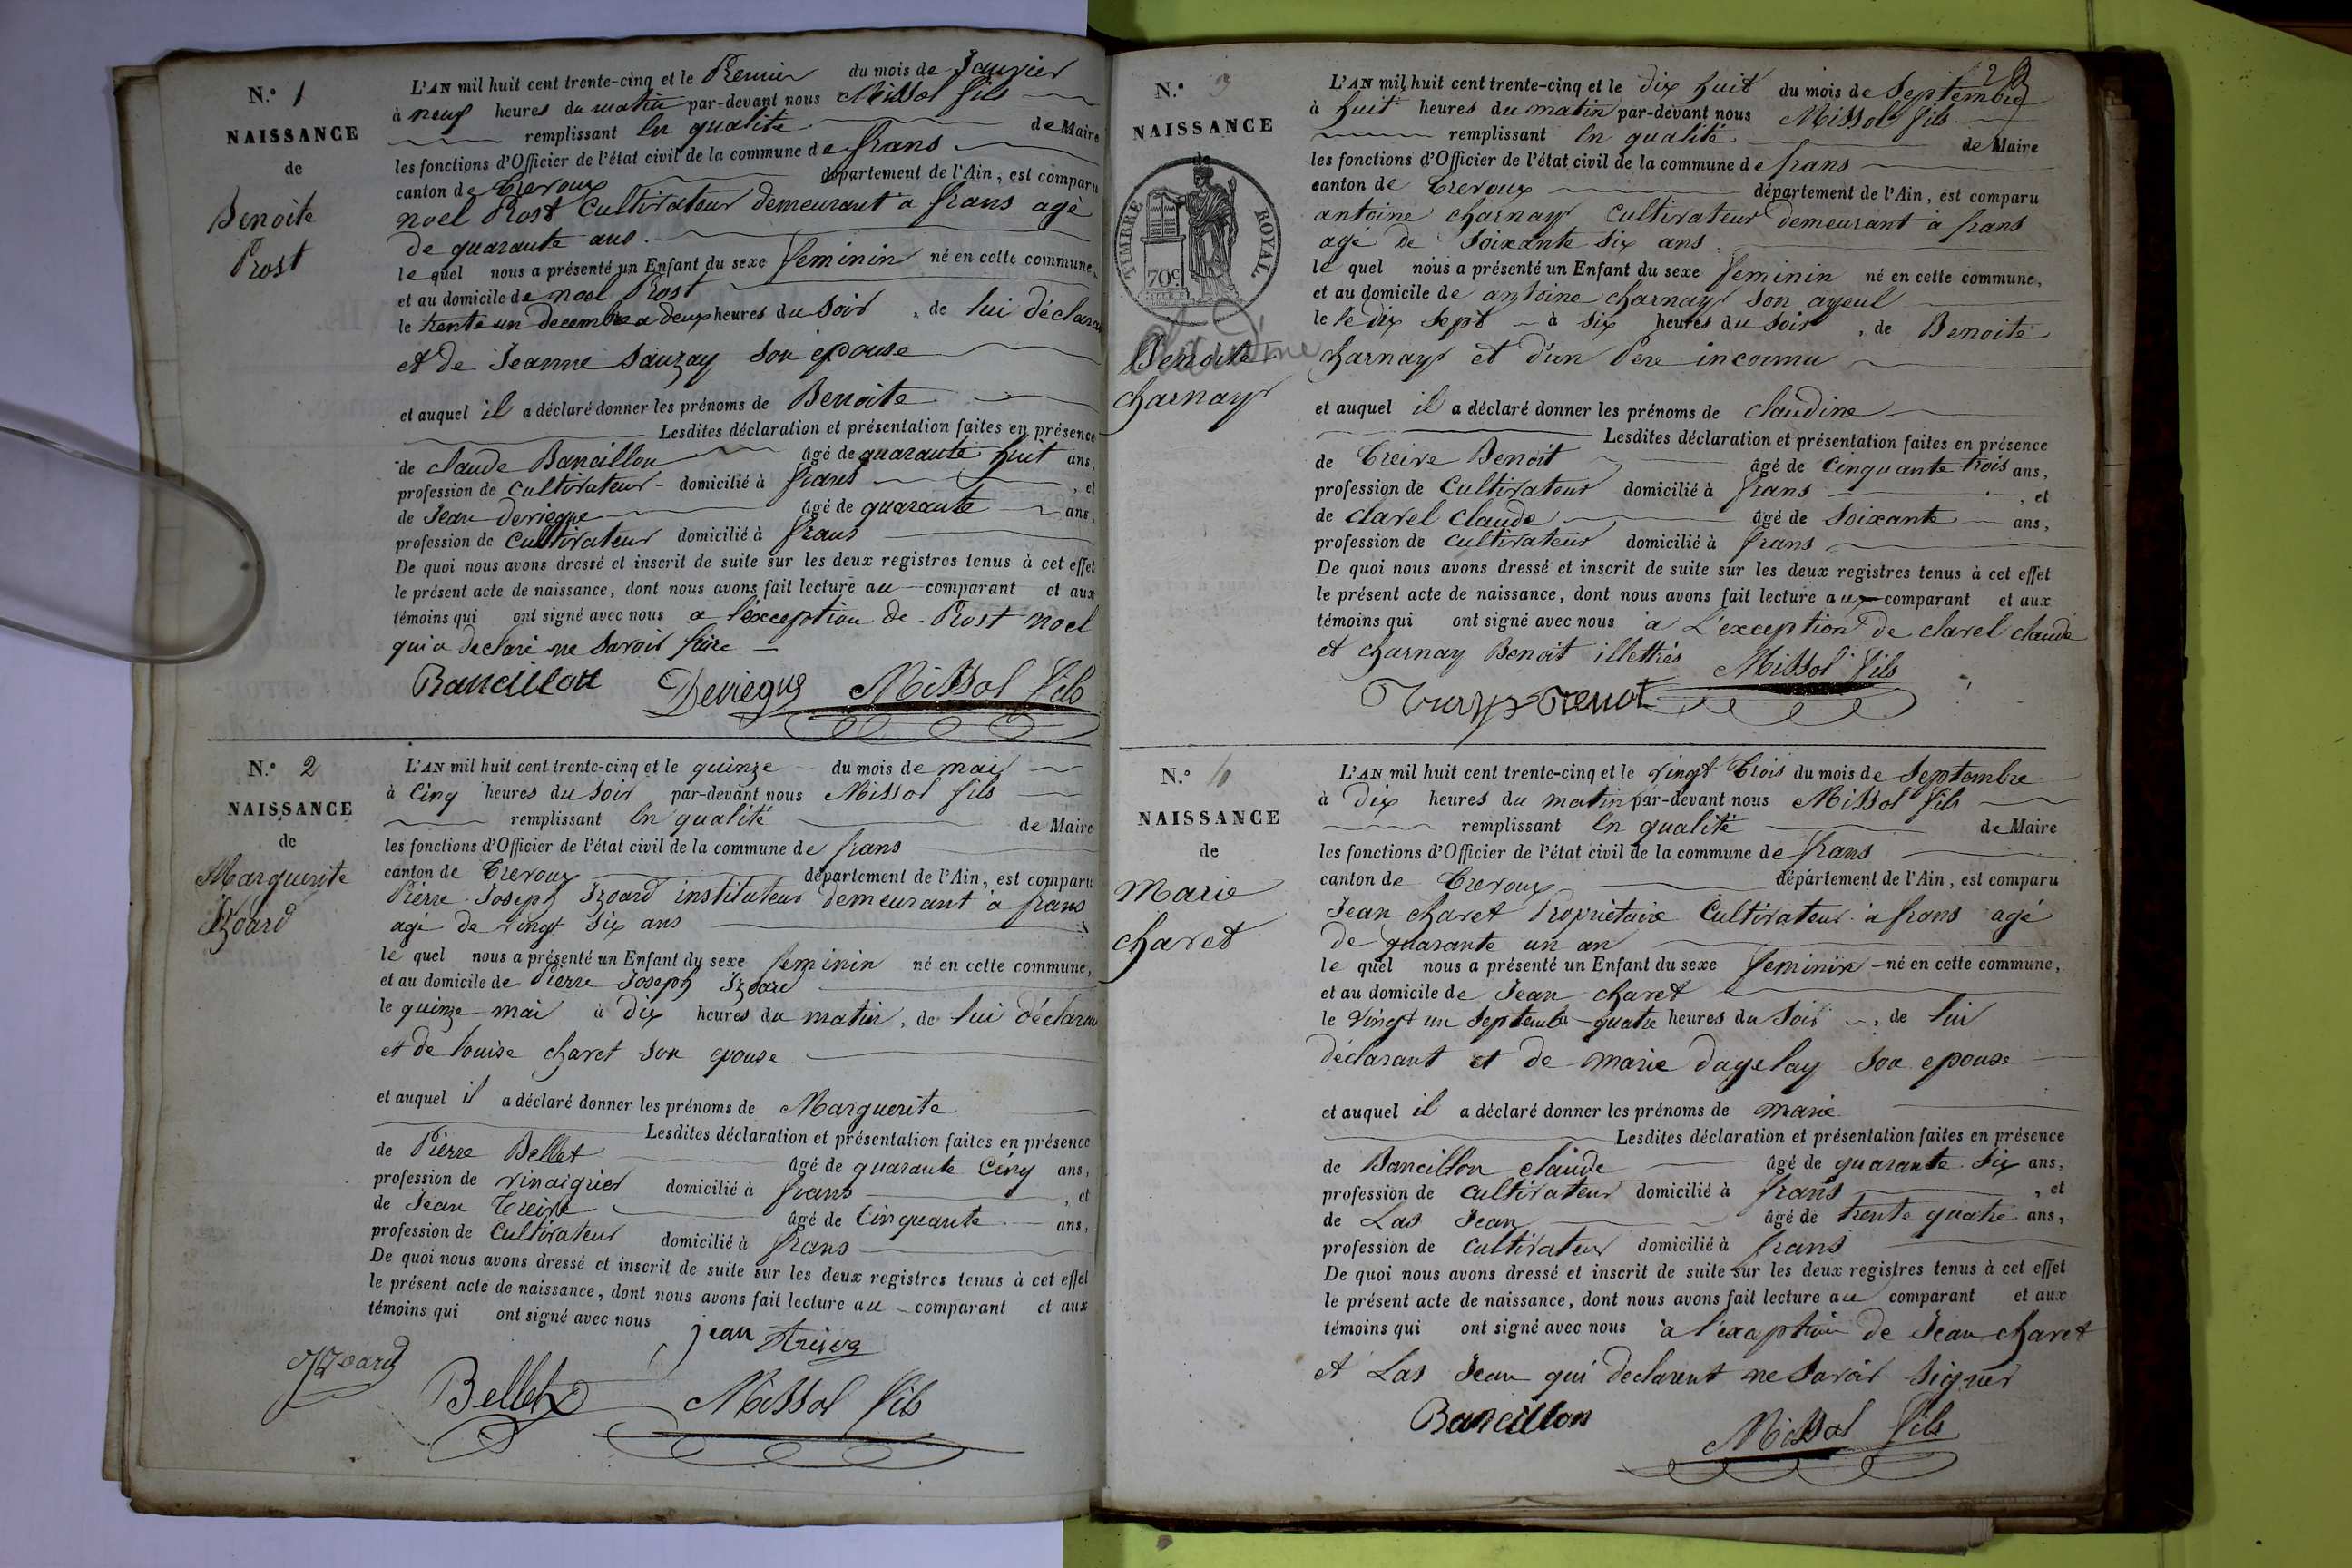 N.° 1
NAISSANCE
de
Benoite
Prost
L'AN mil huit cent trente-cinq et le Premier du mois de Janvier
à neuf heures du matin par-devant nous Missol fils
remplissant en qualité de Maire
les fonctions d'Officier de l'état civil de la commune de frans
canton de Trevoux département de l'Ain, est comparu
noel Prost Cultivateur demeurant à frans agé
de quarante ans.
le quel nous a présenté un Enfant du sexe feminin né en cette commune,
et au domicile de noel Prost
le trente un decembre a deux heures du soir, de lui déclarant
et de Jeanne Sauzay son epouse
et auquel il a déclaré donner les prénoms de Benoite
Lesdites déclaration et présentation faites en présence
de claude Bancillon âgé de quarante huit ans,
profession de cultivateur domicilié à frans, et
de Jean Deviegue âgé de quarante ans,
profession de Cultivateur domicilié à frans
De quoi nous avons dressé et inscrit de suite sur les deux registres tenus à cet effet
le présent acte de naissance, dont nous avons fait lecture au comparant et aux
témoins qui ont signé avec nous a l'exception de Prost noel
qui a declaré ne savoir faire
Bancillon Deviegue Missol fils
N.° 2
NAISSANCE
de
Marguerite
Izoard
L'AN mil huit cent trente-cinq et le quinze du mois de mai
à Cinq heures du soir par-devant nous Missol fils
remplissant en qualité de Maire
les fonctions d'Officier de l'état civil de la commune de frans
canton de Trevoux département de l'Ain, est comparu
Pierre Joseph Izoard instituteur demeurant à frans
agé de vingt six ans
le quel nous a présenté un Enfant du sexe feminin né en cette commune,
et au domicile de Pierre Joseph Izoard
le quinze mai à dix heures du matin, de lui déclarant
et de louise charet son epouse
et auquel il a déclaré donner les prénoms de Marguerite
Lesdites déclaration et présentation faites en présence
de Pierre Bellet âgé de quarante Cinq ans,
profession de vinaigrier domicilié à frans, et
de Jean Treive âgé de Cinquante ans,
profession de Cultivateur domicilié à frans
De quoi nous avons dressé et inscrit de suite sur les deux registres tenus à cet effet
le présent acte de naissance, dont nous avons fait lecture au comparant et aux
témoins qui ont signé avec nous
jean
Izoard Bellet Missol fils
N.° 9
NAISSANCE
de
TIMBRE ROYAL
70c
Claudine
Benoite
charnay
L'AN mil huit cent trente-cinq et le dix huit du mois de Septembre
à huit heures du matin par-devant nous Missol fils
remplissant en qualité de Maire
les fonctions d'Officier de l'état civil de la commune de frans
canton de Trevoux département de l'Ain, est comparu
antoine charnay cultivateur demeurant à frans
agé de soixante six ans
le quel nous a présenté un Enfant du sexe feminin né en cette commune,
et au domicile de antoine charnay son ayeul
le le dix sept à six heures du soir, de Benoite
charnay et d'un Pere inconnu
et auquel il a déclaré donner les prénoms de claudine
Lesdites déclaration et présentation faites en présence
de Treive Benoit âgé de Cinquante trois ans,
profession de Cultivateur domicilié à frans, et
de clavel claude âgé de soixante ans,
profession de cultivateur domicilié à frans
De quoi nous avons dressé et inscrit de suite sur les deux registres tenus à cet effet
le présent acte de naissance, dont nous avons fait lecture aux comparant et aux
témoins qui ont signé avec nous à L'exception de clavel claude
et charnay Benoit illettrés Missol fils
N.° 10
NAISSANCE
de
Marie
charet
L'AN mil huit cent trente-cinq et le vingt Trois du mois de Septembre
à Dix heures du matin par-devant nous Missol fils
remplissant en qualité de Maire
les fonctions d'Officier de l'état civil de la commune de frans
canton de Trevoux département de l'Ain, est comparu
Jean charet Propriétaire Cultivateur à frans agé
de quarante un an
le quel nous a présenté un Enfant du sexe feminin né en cette commune,
et au domicile de Jean charet
le vingt un Septembre quatre heures du soir, de lui
déclarant et de marie dagelay son epouse
et auquel il a déclaré donner les prénoms de marie
Lesdites déclaration et présentation faites en présence
de Bancillon claude âgé de quarante six ans,
profession de cultivateur domicilié à frans, et
de Las Jean âgé de trente quatre ans,
profession de cultivateur domicilié à frans
De quoi nous avons dressé et inscrit de suite sur les deux registres tenus à cet effet
le présent acte de naissance, dont nous avons fait lecture au comparant et aux
témoins qui ont signé avec nous à l'exception de Jean charet
et Las Jean qui declarent ne savoir signer
Bancillon Missol fils